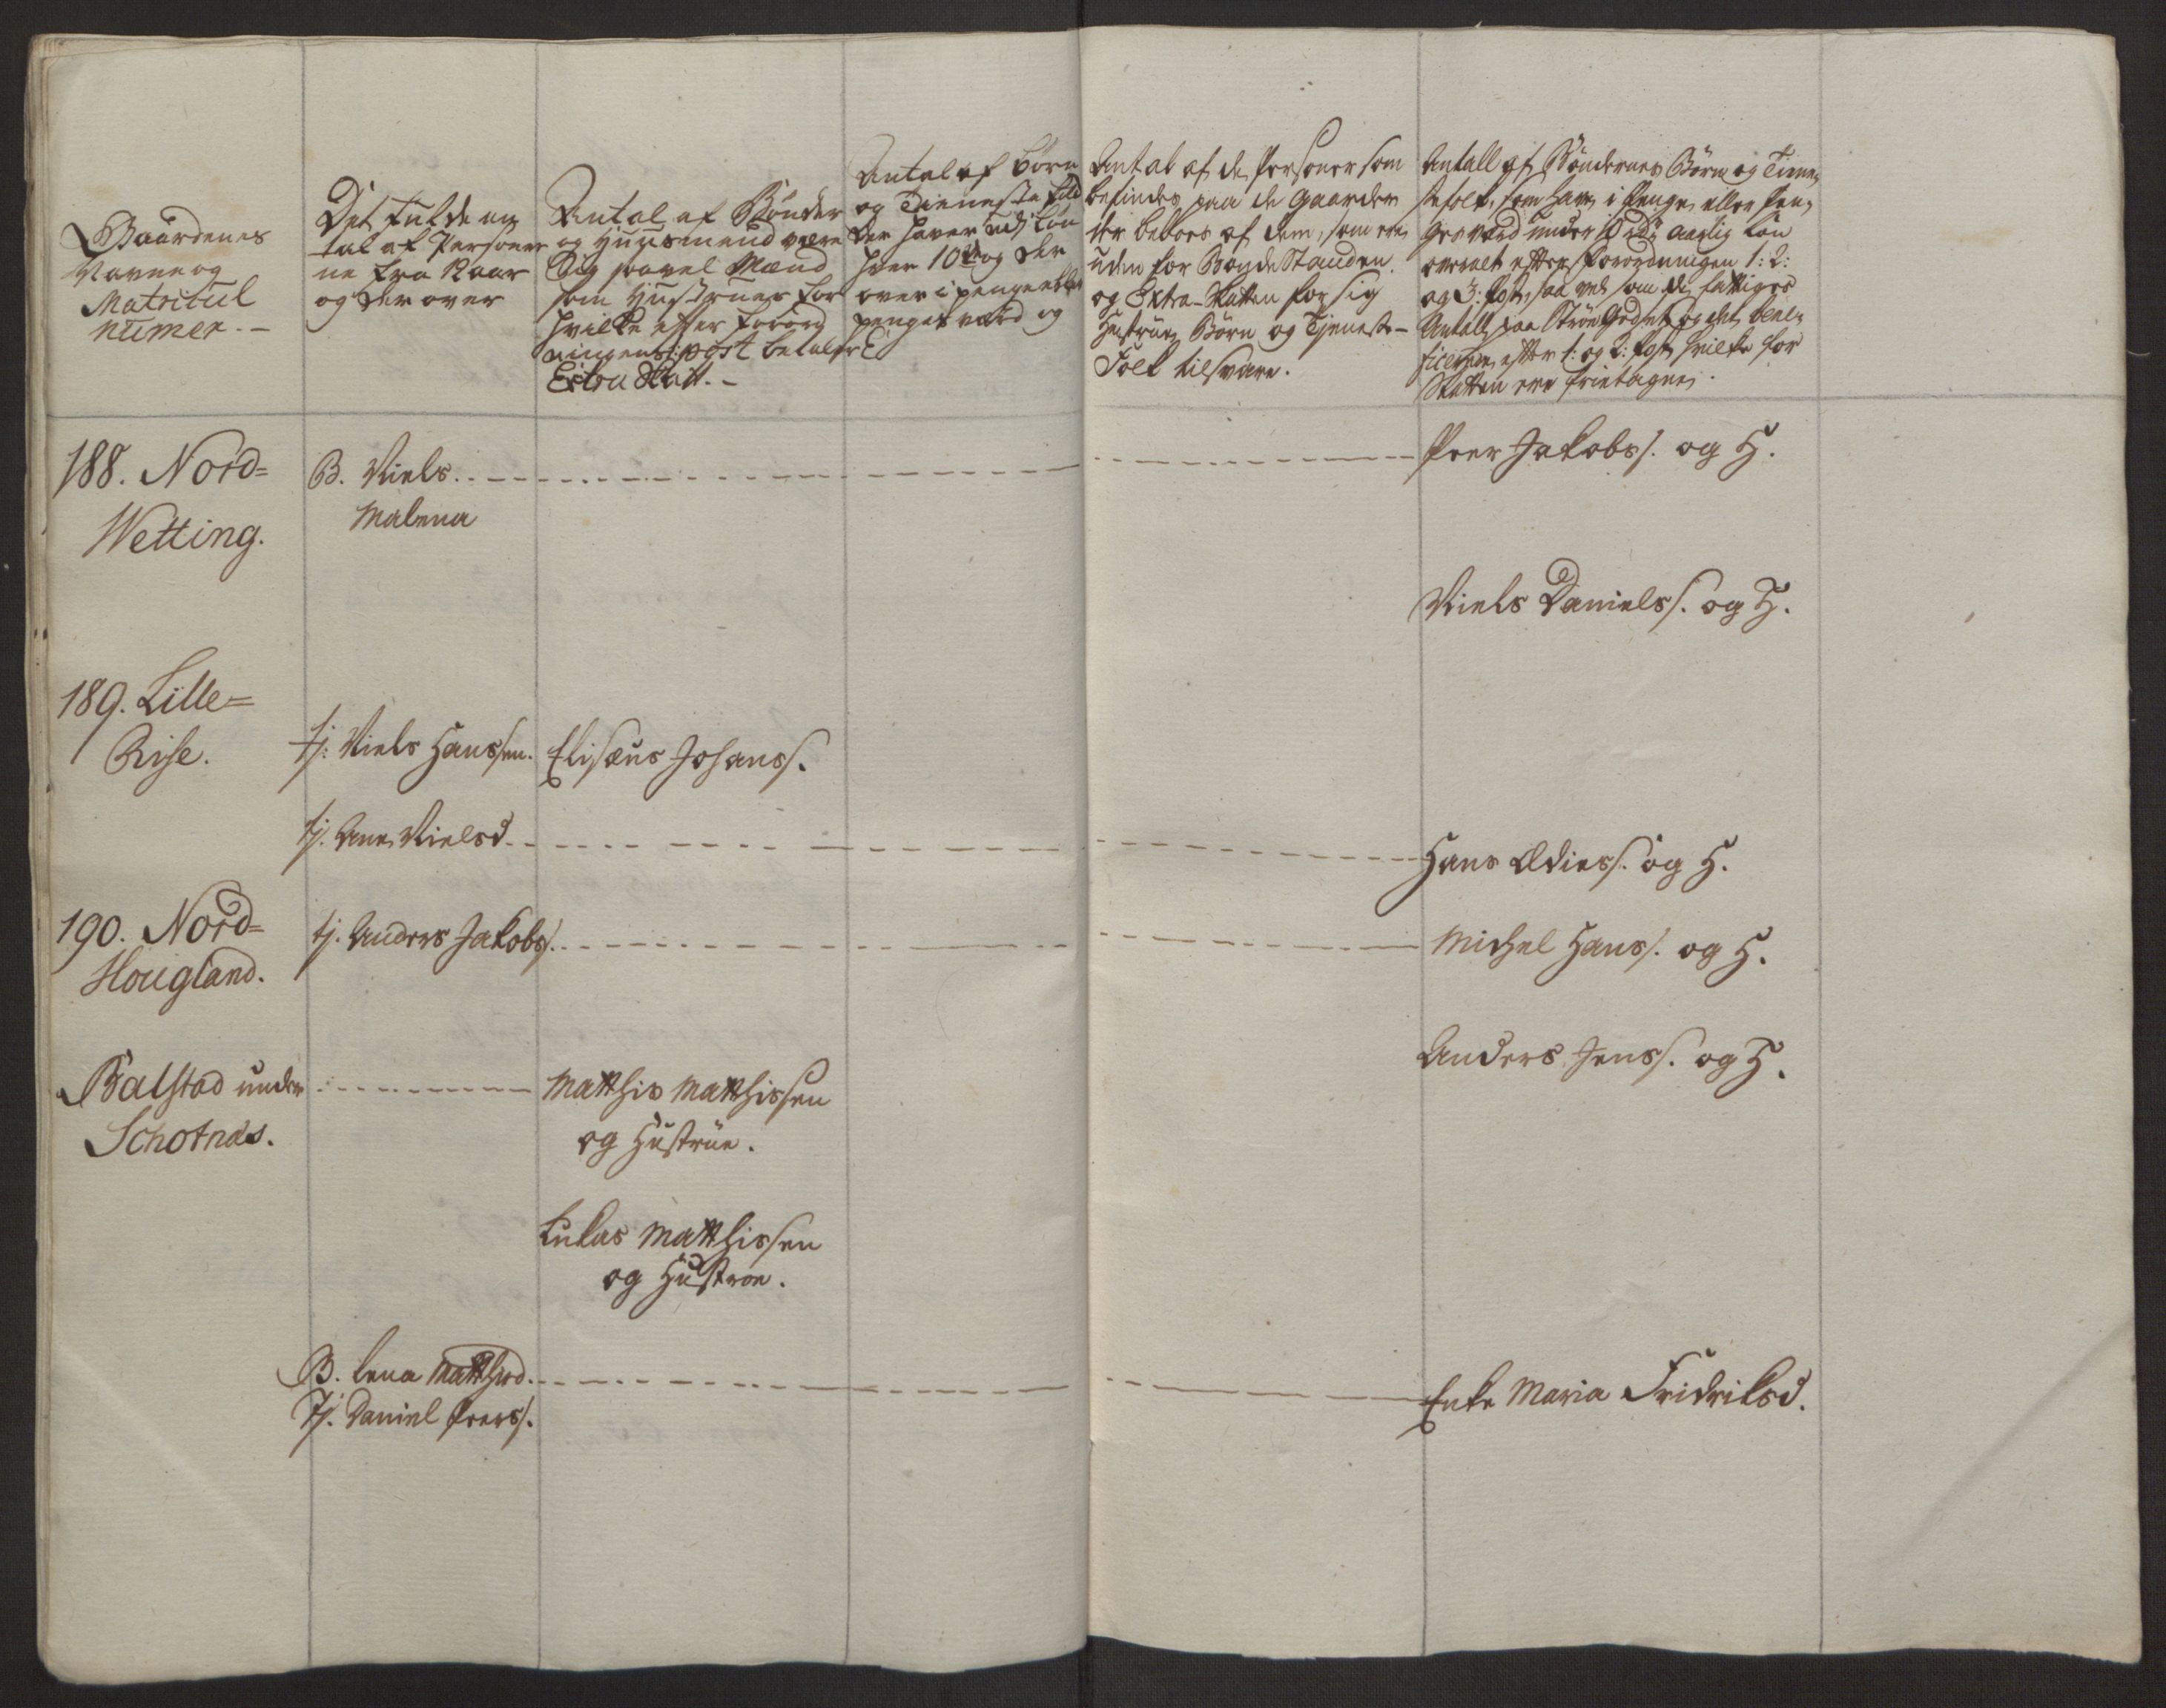 Gaardenes
Navne og
Matricul
numer.-
Det fulde an
tal af Personer
ne fra 12 aar
og der over
Antal af Bönder
og Huusmend være
sig saavel Mænd
som Hustruer for
hvilke efter forord
ningens 1: post betales
Extra Skatt.-
Antal af börn
og Tieneste folk
der haver udj Lön
hver 10 rd og der
over i penge eller
penges værd og
Antal af de Personer som
befindes paa de Gaarder
der beboes af dem, som ere
uden for Bonde Standen
og Extra-Skatten for sig
Hustrue, Börn og Tjeneste-
Folk tilsvare.
Antall af Böndernes Börn og Tiene-
stefolk, som have i Penge eller Pen-
ges værd under 10 rd: aarlig Lön
overalt efter Forordningen 1: 2:
og 3: Post, saa vel som de fattiges
Antall paa Ströe Godset og det bene-
ficerede efter 1: og 2: Post hvilke for
Skatten ere frietagne.
188. Nord=
Wetting.
B. Niels.
Malena
Peer Jakobs. og H.
Niels Daniels. og H.
189. Lille=
Rise.
tj: Niels Hanssen.
Elisæus Johans.
tj. Ane Nielsd.
Hans Ædies. og H.
190. Nord=
Hougland.
tj. Anders Jakobs.
Michel Hans. og H.
Anders Jens. og H.
Balstad under
Schotnæs.
Matthis Matthissen
og Hustrüe.
Lukas Matthissen
og Hustroe.
B. Lena Matthisd.
Tj. Daniel Peers.
Enke Maria Fridriksd.